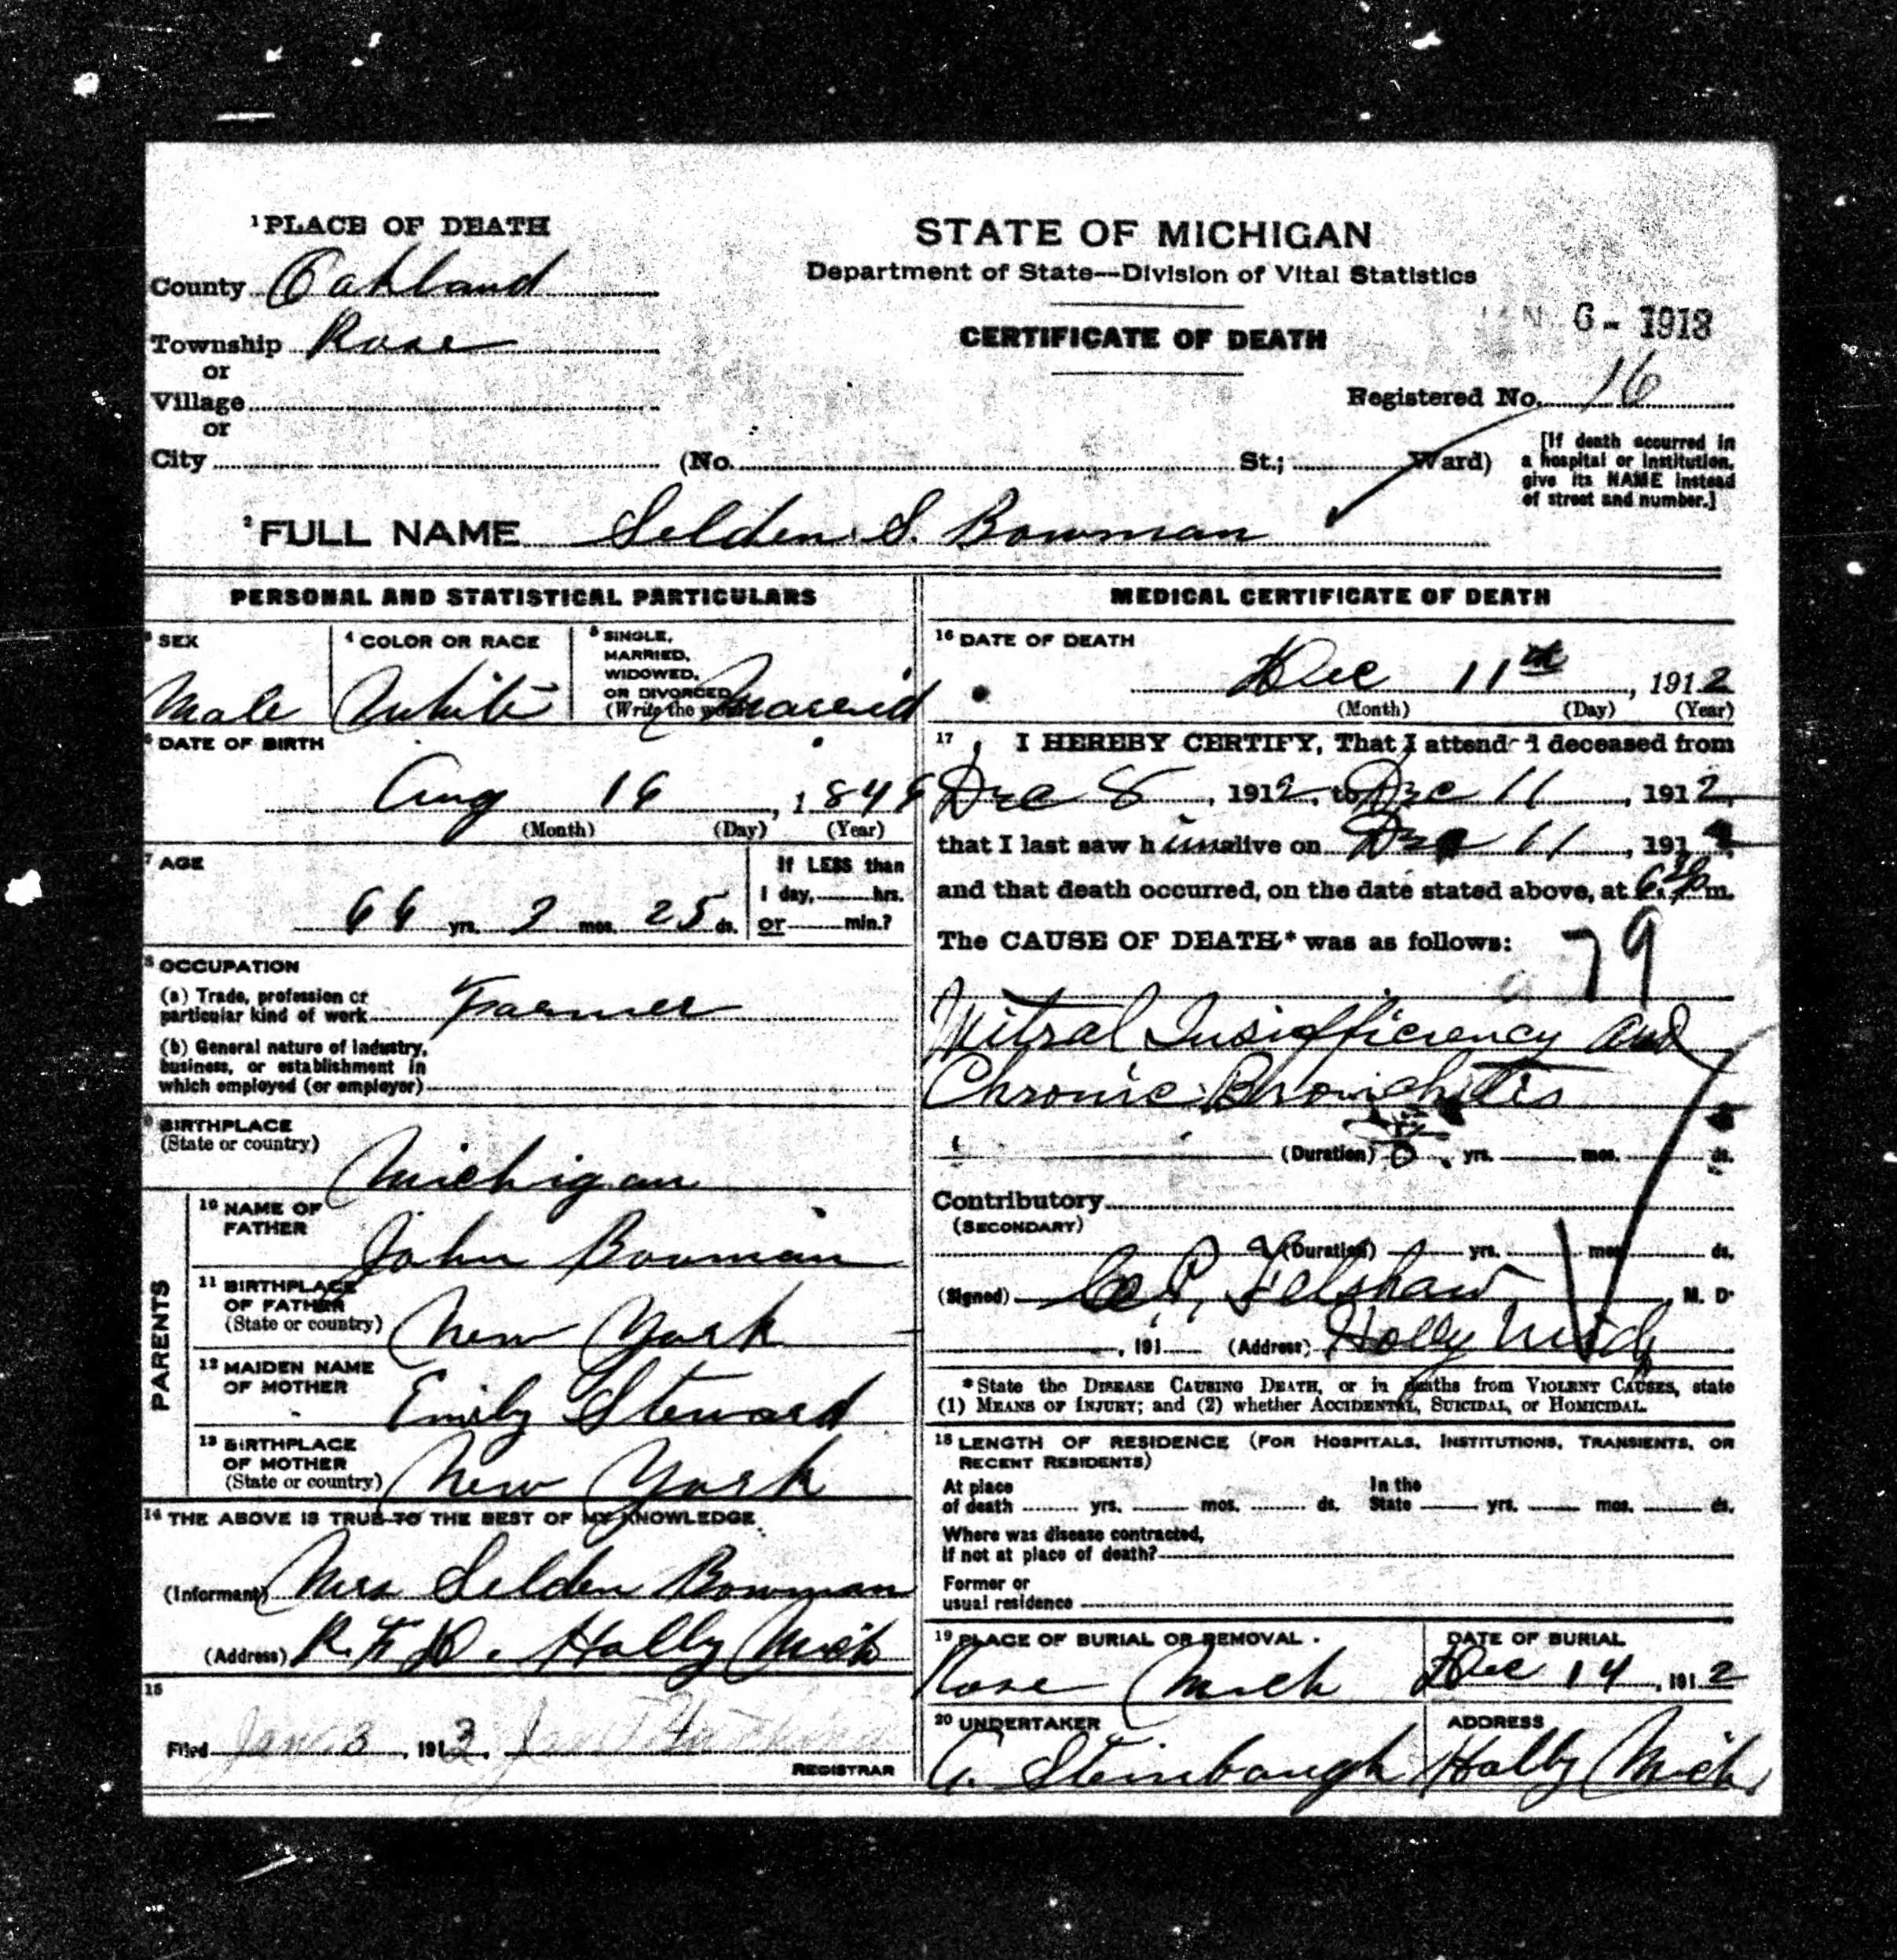 1 PLACE OF DEATH
County Oakland
Township Rose
or
Village
or
City (No. St.; Ward)
STATE OF MICHIGAN
Department of State—Division of Vital Statistics
CERTIFICATE OF DEATH
6- 1913
Registered No. 16
[If death occurred in
a hospital or institution,
give its NAME instead
of street and number.]
2 FULL NAME Selden S. Bowman
PERSONAL AND STATISTICAL PARTICULARS
3 SEX
Male
4 COLOR OR RACE
White
5 SINGLE,
MARRIED,
WIDOWED,
OR DIVORCED
(Write the word)
Married
6 DATE OF BIRTH
Aug 16, 1846
(Month) (Day) (Year)
7 AGE
66 yrs. 3 mos. 25 ds.
If LESS than
1 day, hrs.
or min.?
8 OCCUPATION
(a) Trade, profession or
particular kind of work Farmer
(b) General nature of industry,
business, or establishment in
which employed (or employer)
9 BIRTHPLACE
(State or country)
Michigan
PARENTS
10 NAME OF
FATHER
John Bowman
11 BIRTHPLACE
OF FATHER
(State or country) New York
12 MAIDEN NAME
OF MOTHER
Emily Steward
13 BIRTHPLACE
OF MOTHER
(State or country) New York
14 THE ABOVE IS TRUE TO THE BEST OF MY KNOWLEDGE
(Informant) Mrs Selden Bowman
(Address) R.F.D. Holly Mich
15
Filed Jan. 3, 1913,
REGISTRAR
MEDICAL CERTIFICATE OF DEATH
16 DATE OF DEATH
Dec 11th, 1912
(Month) (Day) (Year)
17 I HEREBY CERTIFY, That I attended deceased from
Dec 8, 1912, to Dec 11, 1912,
that I last saw him alive on Dec 11, 1912,
and that death occurred, on the date stated above, at 6.30 p m.
The CAUSE OF DEATH* was as follows:
79
Mitral Insufficiency and
Chronic Bronchitis
(Duration) yrs. mos. ds.
Contributory
(SECONDARY)
(Duration) yrs. mos. ds.
(Signed) C.P. Felshaw M. D.
, 191 (Address) Holly Mich
*State the DISEASE CAUSING DEATH, or in deaths from VIOLENT CAUSES, state
(1) MEANS OF INJURY; and (2) whether ACCIDENTAL, SUICIDAL, or HOMICIDAL.
18 LENGTH OF RESIDENCE (FOR HOSPITALS, INSTITUTIONS, TRANSIENTS, OR
RECENT RESIDENTS)
At place
of death yrs. mos. ds.
In the
State yrs. mos. ds.
Where was disease contracted,
if not at place of death?
Former or
usual residence
19 PLACE OF BURIAL OR REMOVAL
Rose Mich
DATE OF BURIAL
Dec 14, 1912
20 UNDERTAKER
Steinbaugh
ADDRESS
Holly Mich